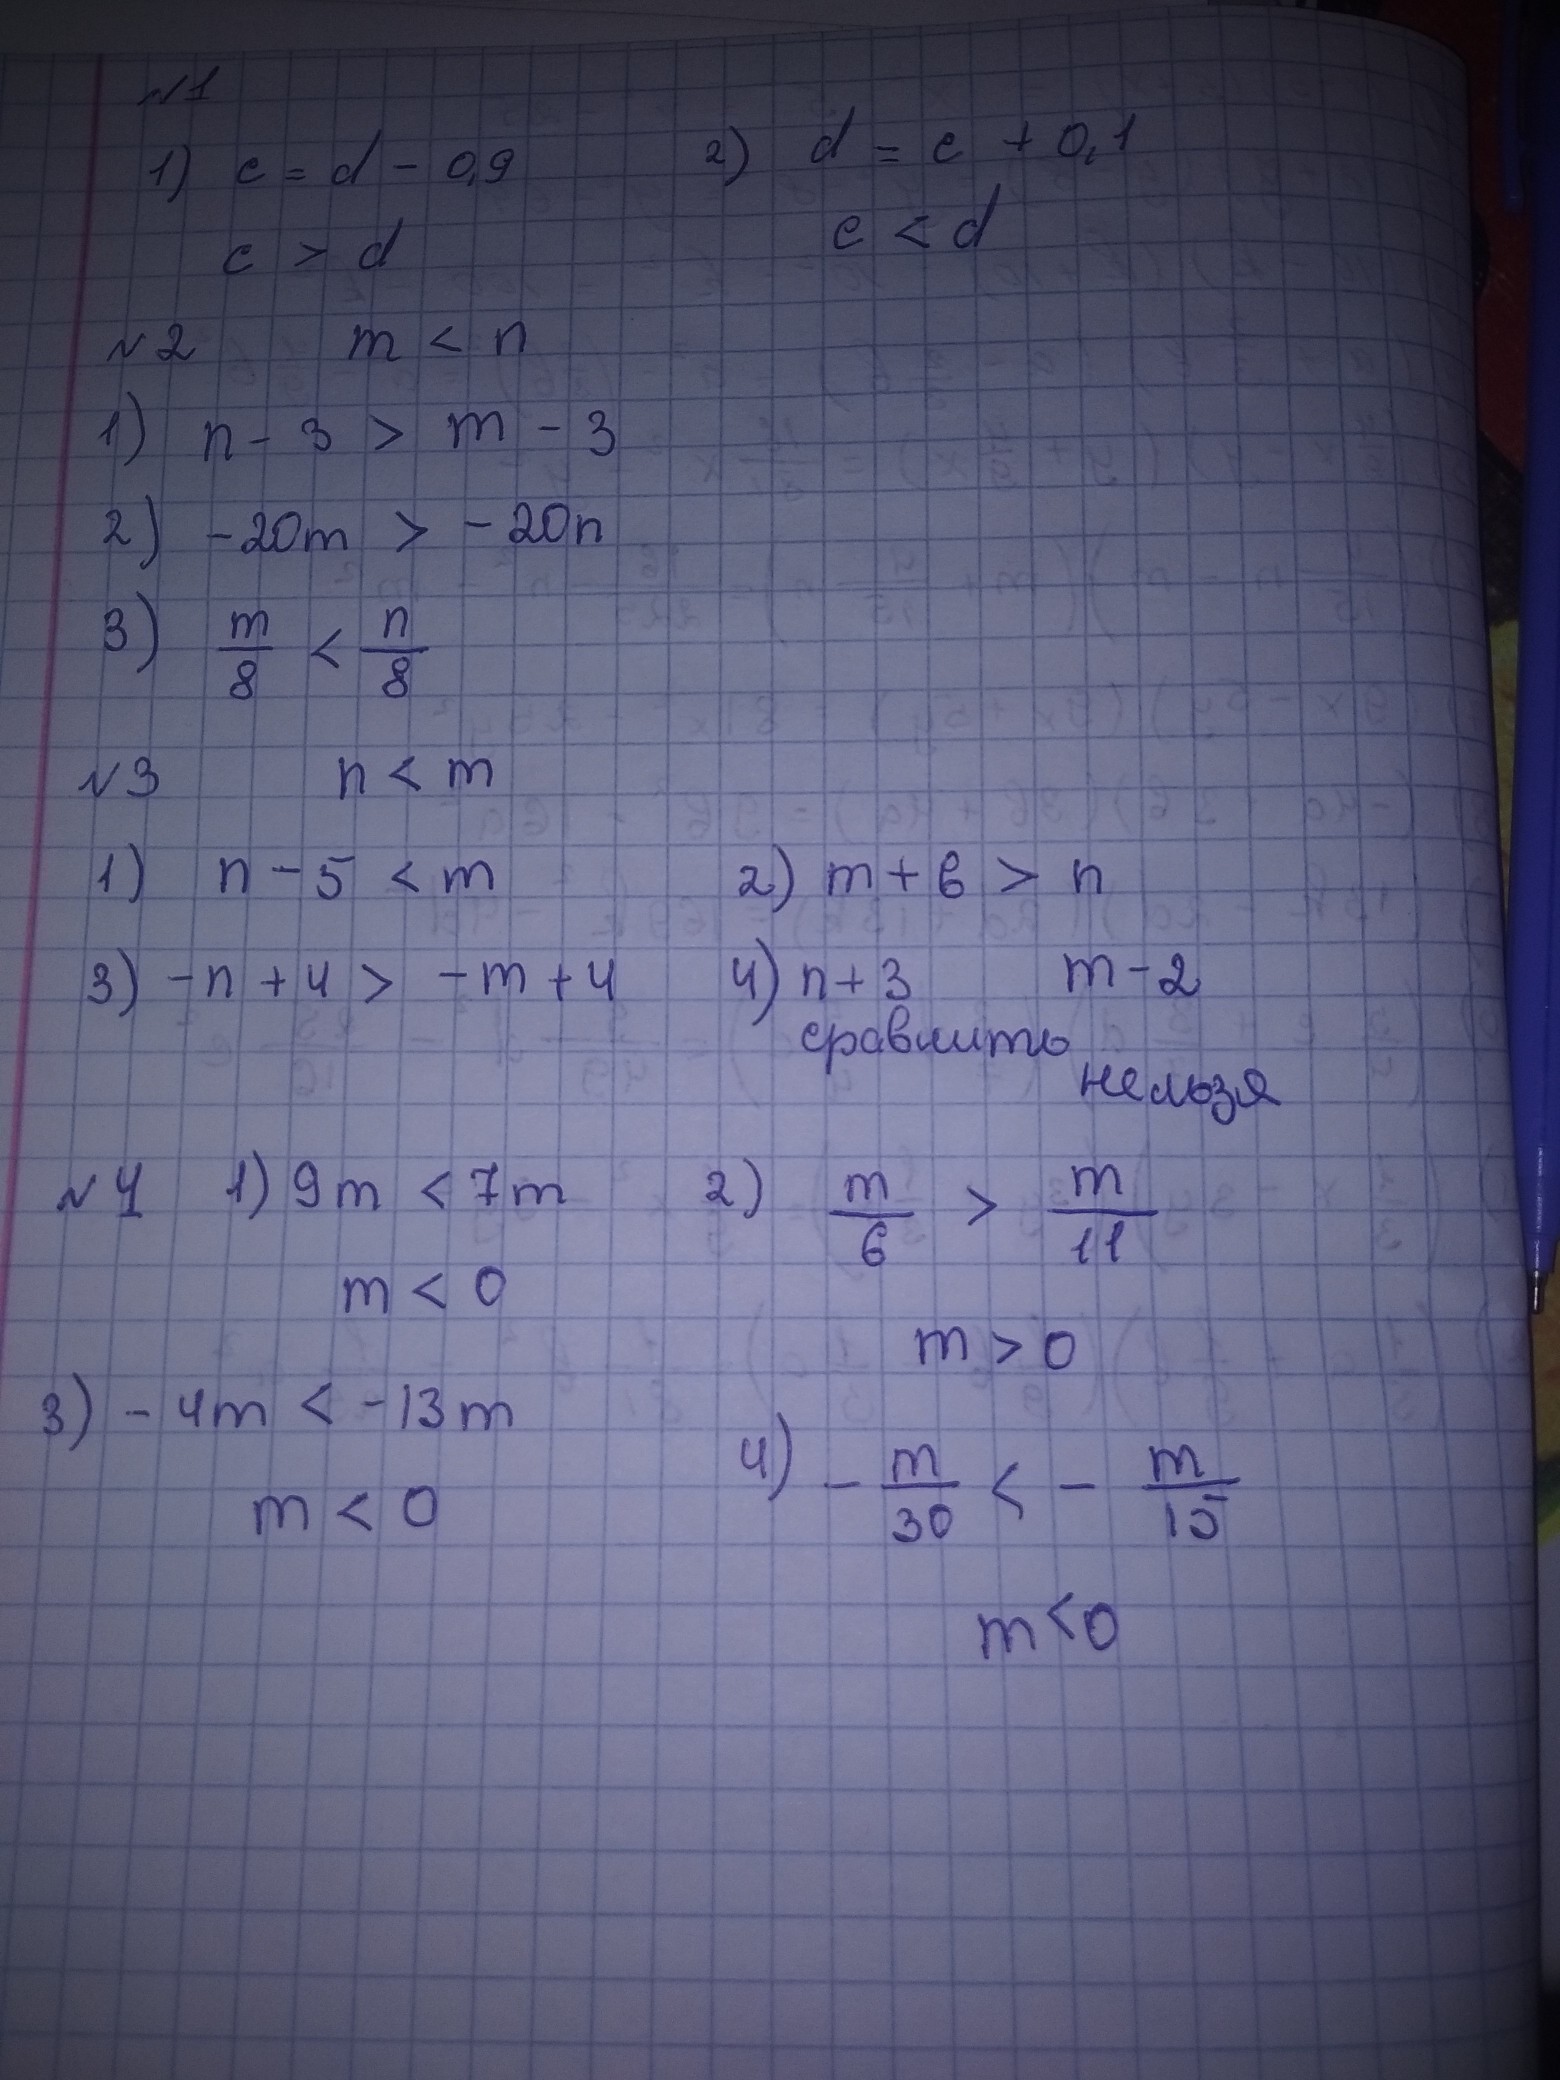 №1
1) c = d - 0,9 2) d = c + 0,1
c > d c < d
№2 m < n
1) n - 3 > m - 3
2) -20m > -20n
3) m/8 < n/8
№3 n < m
1) n - 5 < m 2) m + 6 > n
3) -n + 4 > -m + 4 4) n + 3 m - 2
сравнить
нельзя
№4 1) 9m < 7m 2) m/6 > m/11
m < 0
m > 0
3) -4m < -13m
4) -m/30 < -m/15
m < 0
m < 0